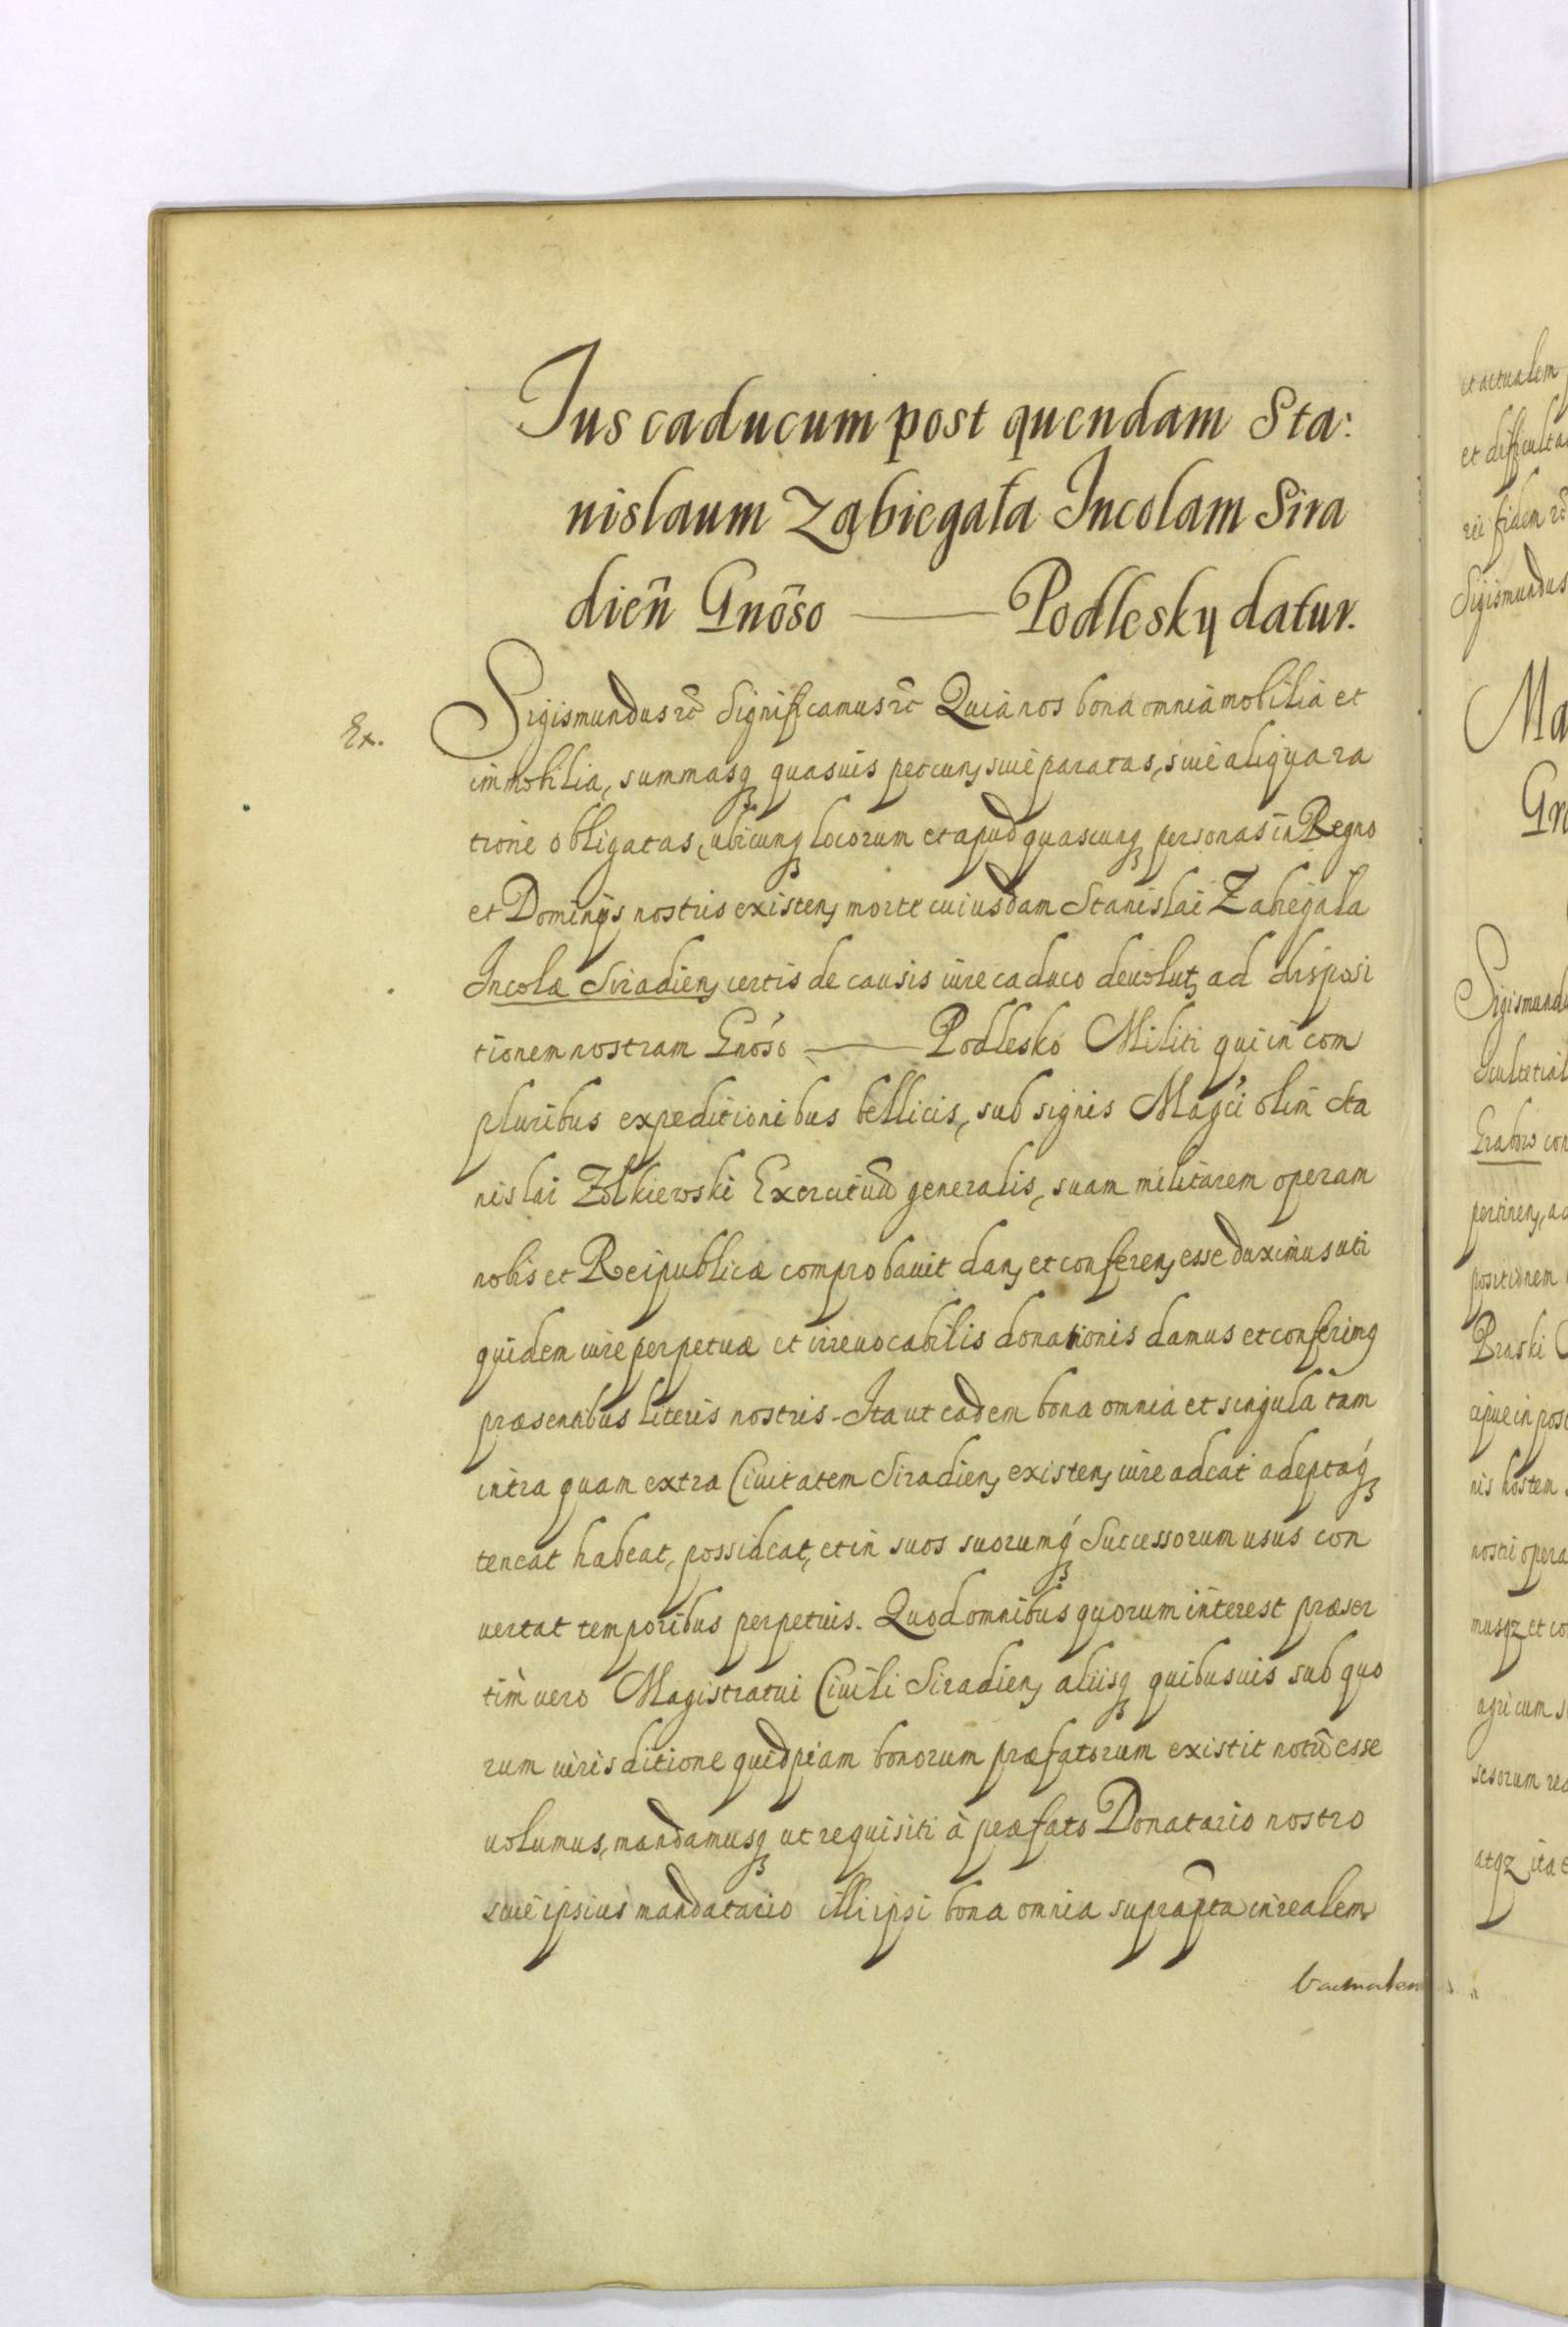 Ius caducum post quendam Sta:
nislaum Zabiegała Incolam Sira
dien̄ Gnōso —— Podlesky datur.
Ex.
Sigismundus ꝛc̄ Significamus ꝛc̄ Quia nos bona omnia mobilia et
immobilia, summasq̨ quasuis pecun, siue paratas, siue aliqua ra
tione obligatas, ubicunq̨ locorum et apud quascunq̨ personas in Regno
et Dominijs nostris existen, morte cuiusdam Stanislai Zabiegała
Incolæ Siradien, certis de causis iure caduco deuolut, ad disposi
tionem nostram Gnóso —— Podlesko Militi qui in com
pluribus expeditionibus bellicis, sub signis Magci olim Sta
nislai Zolkiewski Exercituū generalis, suam militarem operam
nobis et Reipublicæ comprobauit dan, et conferen, esse duximus uti
quidem iure perpetuæ et irreuocabilis donationis damus et conferimq
præsentibus literis nostris. Ita ut eadem bona omnia et singula tam
intra quam extra Ciuitatem Siradien, existen, iure adeat adeptaq́
teneat habeat, possideat, et in suos suorumq́ Successorum usus con
uertat temporibus perpetuis. Quod omnibus quorum interest præser
tim uero Magistratui Ciuili Siradien, aliisq̨ quibusuis sub quo
rum iurisditione quidpiam bonorum præfatorum existit notū esse
uolumus, mandamusq̨ ut requisiti à præfato Donatario nostro
siue ipsius mandatario illi ipsi bona omnia suprapta in realem
et actualem
et difficulta
rei fidem ꝛc̄
Sigismundus
Ma
Gr
Sigismundu
Scultetial
Grabow con
pertinen, ac
positionem
Braski
cipue in pos
nis hostem
nostri opera
musqz et co
agri cum s
sesorum re
atqz ita e